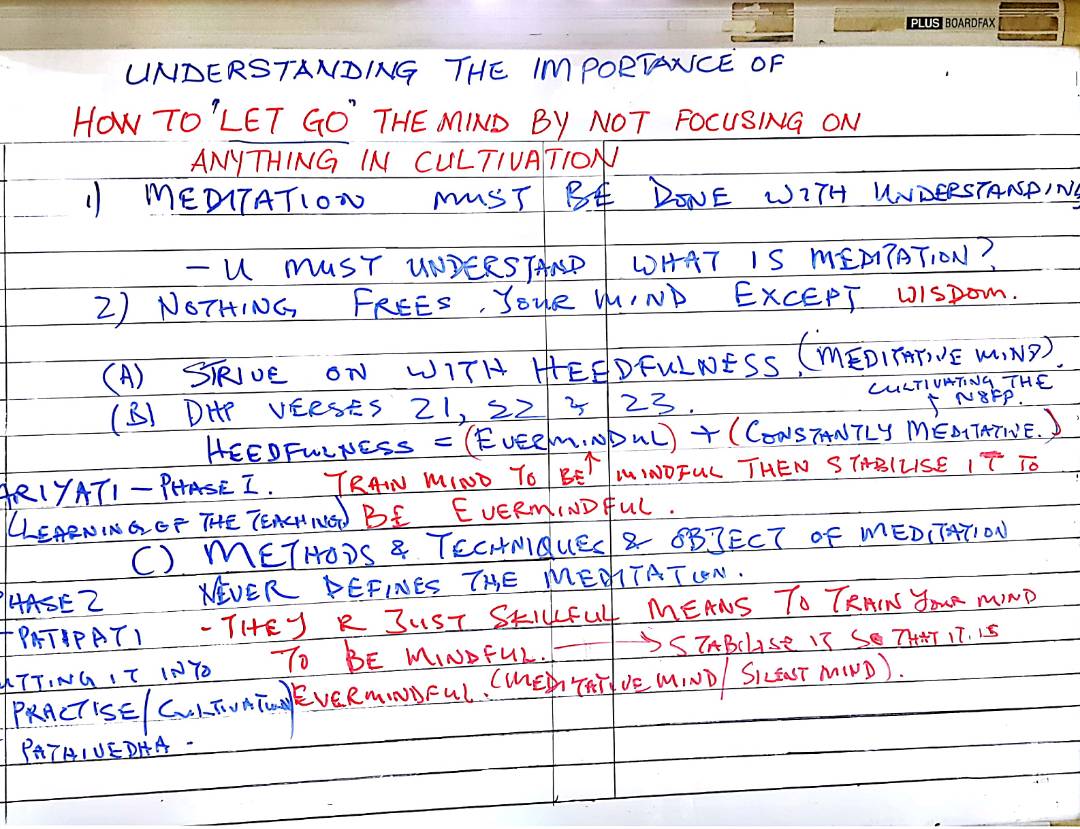 PLUS BOARDFAX
UNDERSTANDING THE IMPORTANCE OF
HOW TO "LET GO" THE MIND BY NOT FOCUSING ON
ANYTHING IN CULTIVATION
1) MEDITATION MUST BE DONE WITH UNDERSTANDING
- U MUST UNDERSTAND WHAT IS MEDITATION?
2) NOTHING FREES YOUR MIND EXCEPT WISDOM.
(A) STRIVE ON WITH HEEDFULNESS. (MEDITATIVE MIND).
CULTIVATING THE
(B) DHP VERSES 21, 22 & 23. ↑ N8FP.
HEEDFULNESS = (EVERMINDUL) + (CONSTANTLY MEDITATIVE.)
ARIYATI - PHASE I. TRAIN MIND TO BE↑ MINDFUL THEN STABILISE IT TO
(LEARNING OF THE TEACHING) BE EVERMINDFUL.
C) METHODS & TECHNIQUES & OBJECT OF MEDITATION
PHASE 2 NEVER DEFINES THE MEDITATION.
- PATIPATI - THEY R JUST SKILLFUL MEANS TO TRAIN YOUR MIND
UTTING IT INTO TO BE MINDFUL. → STABILISE IT SO THAT IT IS
PRACTISE/CULTIVATION) EVERMINDFUL. (MEDITATIVE MIND/SILENT MIND).
PATHIVEDHA -